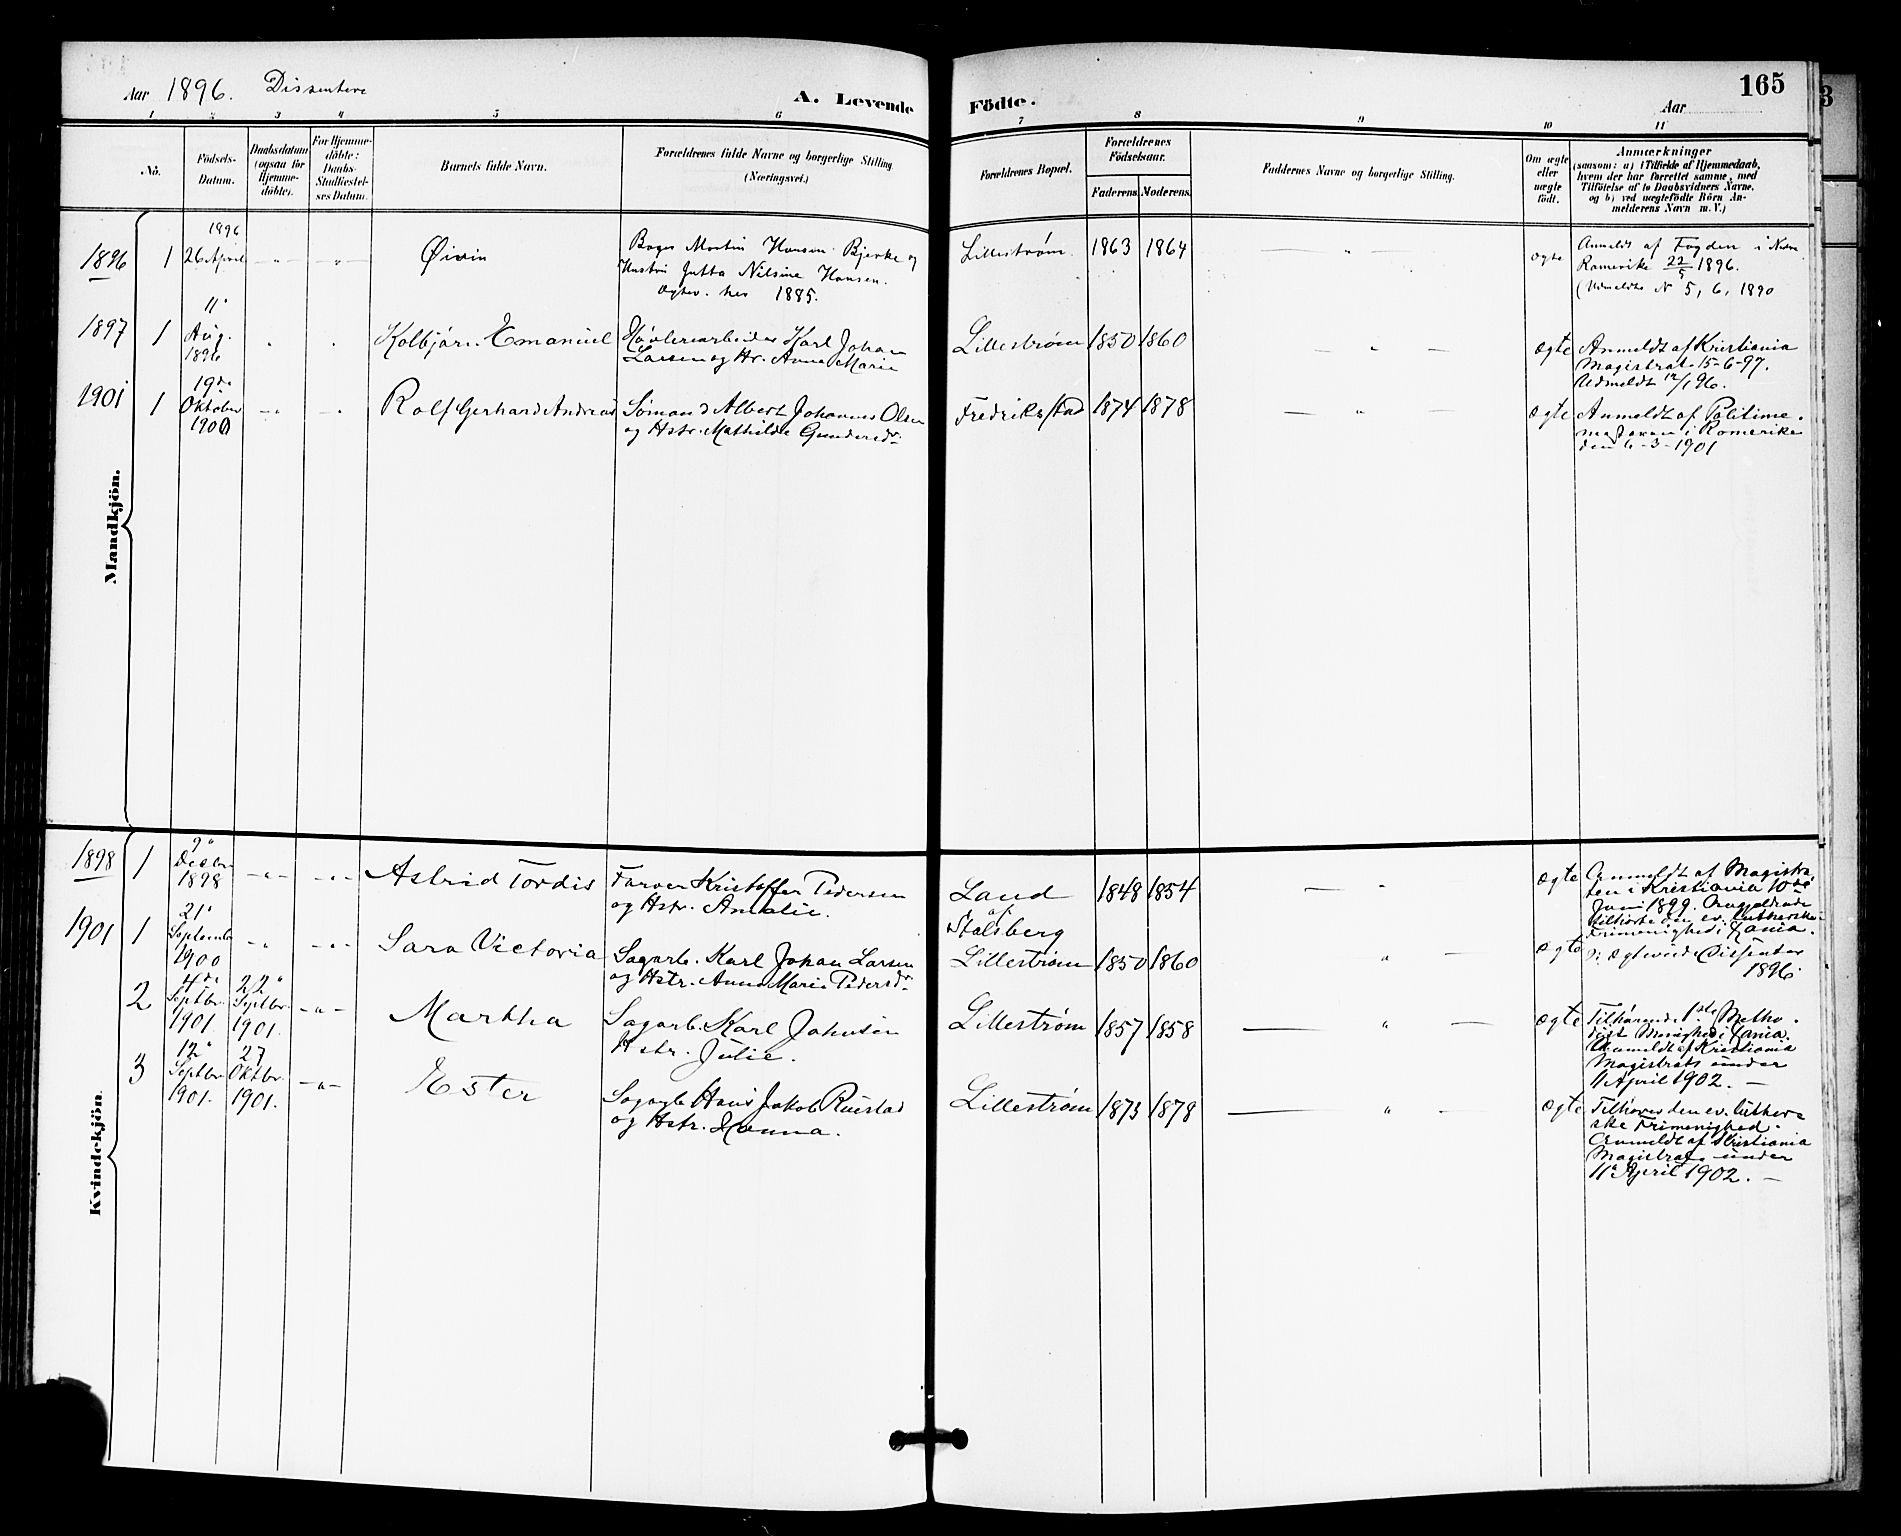 Aar 1896. Dissentere
A. Levende
Födte.
Aar
165
1 2 3 4 5 6 7 8 9 10 11
No.
Födsels-
Datum.
Daabsdatum
(ogsaa for
Hjemme-
döbte).
For Hjemme-
döbte:
Daabs-
Stadfæstel-
ses Datum.
Barnets fulde Navn.
Forældrenes fulde Navne og borgerlige Stilling
(Næringsvei.)
Forældrenes Bopæl.
Forældrenes
Födselsaar.
Faderens. Moderens.
Faddernes Navne og borgerlige Stilling.
Om ægte
eller
uægte
födt.
Anmærkninger
(saasom: a) i Tilfælde af Hjemmedaab,
hvem der har forrettet samme, med
Tilföielse af to Daabsvidners Navne,
og b) ved uægtefödte Börn An-
melderens Navn m. V.)
Mandkjön.
1896 1
1896
26 April
Øivin
Bager Martin Hansen Bjerke og
Hustru Jutta Nilsine Hansen.
1885.
Lillestrøm. 1863 1864
ægte
Anmeldt af Fogden i Nedre
Romerike 22/5 1896.
(Udmeldte 5, 6, 1890
1897 1
11'
Aug.
1896
Kolbjörn Emanuel
Høvleriarbeider Karl Johan
Larsen og Hr. Anna Marie
Lillestrøm 1850 1860
ægte
Anmeldt af Kristiania
Magistrat 15-6-97.
Udmeldt 12/1 96.
1901 1
19de
Oktober
1900
Rolf Gerhard Andreas
Sømand Albert Johannes Olsen
og Hstr. Mathilde Gundersdr.
Fredrikstad 1874 1878
ægte
Anmeldt af Politime-
steren i Romerike
den 6-3-1901
Kvindekjön.
1898 1
9"
Decbr.
1898
Astrid Tordis
Farver Kristoffer Pedersen
og Hstr. Amalie.
Land
af
Stalsberg
1848 1854
ægte
Anmeldt af Magistra-
ten i Kristiania 10de
Juni 1899.
tilhörte den ev. lutherske
Frimenighed i Xania.
1901 1
21'
September
1900
Sara Victoria
Sagarb. Karl Johan Larsen
og Hstr. Anna Marie Pedersdr.
Lillestrøm 1850 1860
ægte
Dissenter
1896.
2
Septbr.
1901.
22"
Septbr.
1901.
Martha
Sagarb. Karl Johnsen
Hstr. Julie.
Lillestrøm 1857 1858
ægte
Tilhörende 1ste Metho-
dist Menighed i Xania.
Anmeldt af Kristiania
Magistrats under
11 April 1902.
3
12"
Septbr.
1901.
27
Oktbr.
1901.
Ester
Sagarb. Hans Jakob Ruestad
og Hstr. Hanna.
Lillestrøm 1873 1878
ægte
Tilhörer den ev. luther-
ske Frimenighed.
Anmeldt af Kristiania
Magistrat under
11' April 1902.